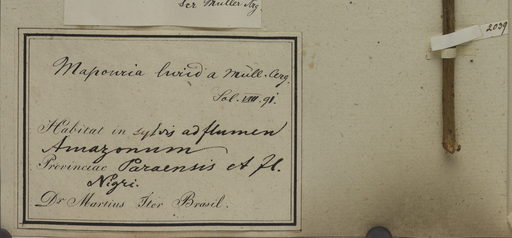 Ser Müller Arg.
2039
Mapouria lurida Müll. Arg.
Sol. VIII. 91.
Habitat in sylvis ad flumen
Amazonum
Provinciae Paraensis et fl.
Nigri.
Dr Martius Iter Brasil.